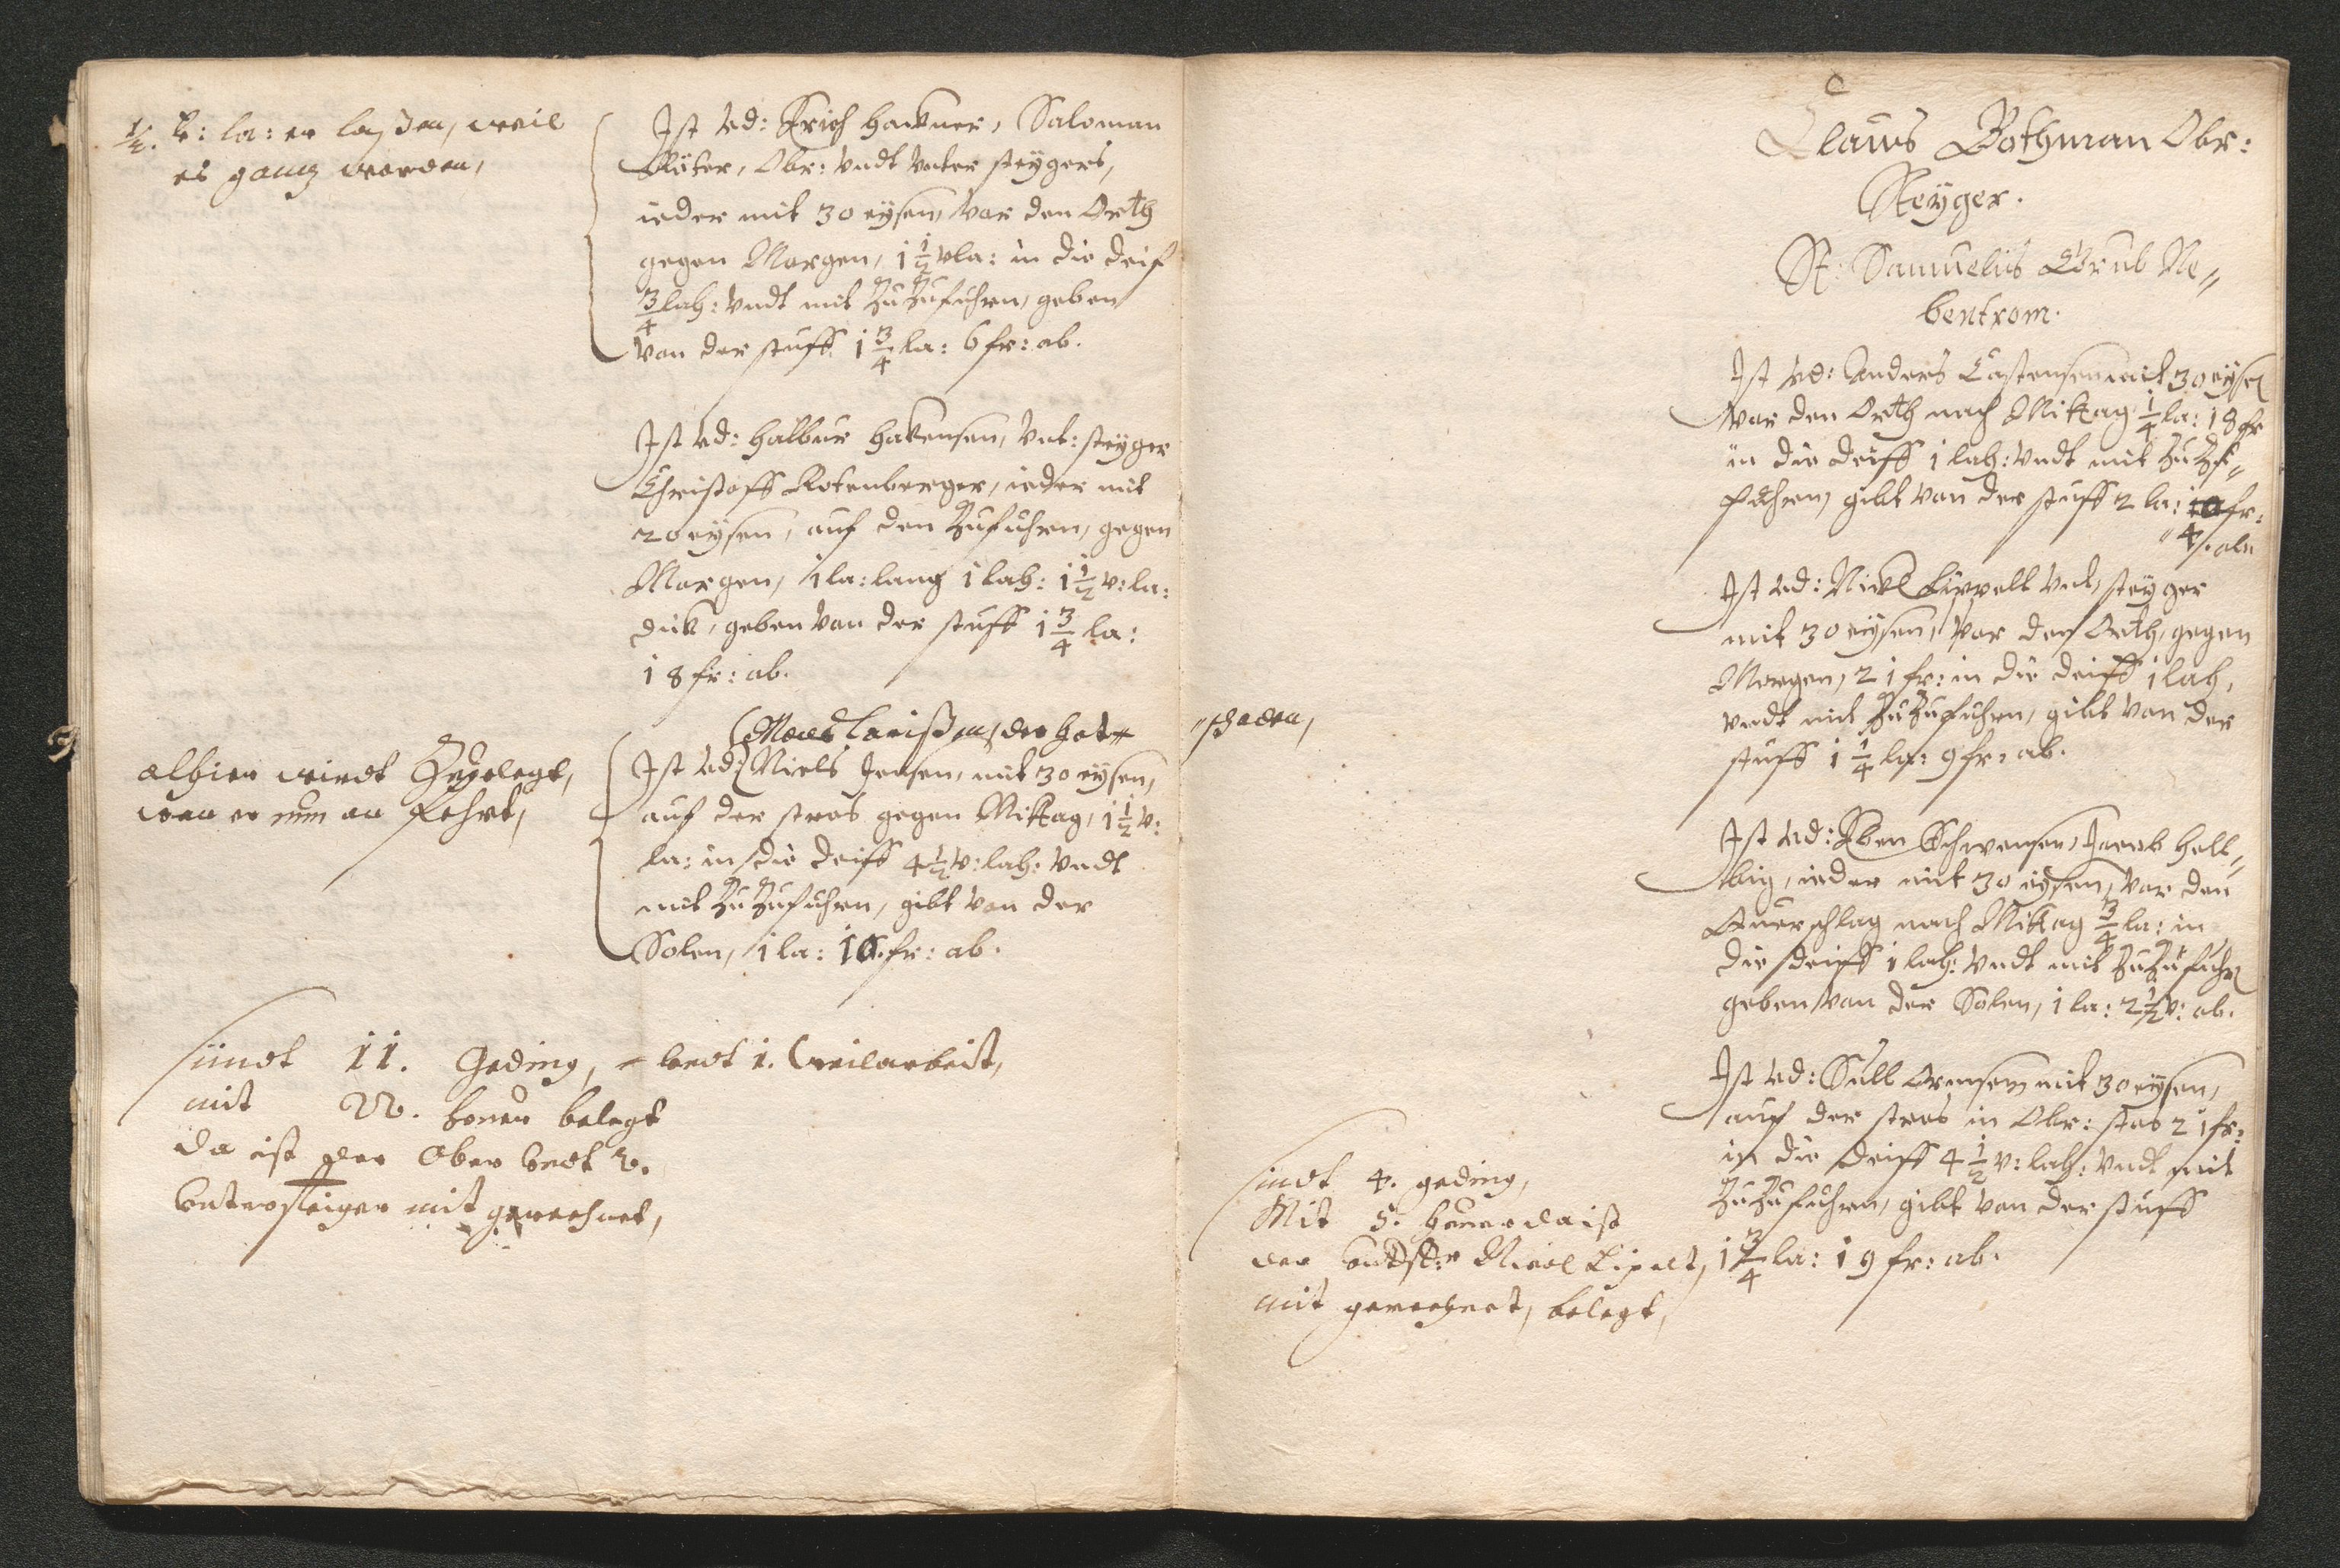 ½. v: la: er laßen, weil
es gantz worden,
Ist vd: Erich Hackner, Saloman
Röter, Obr: vndt vnter steÿgers,
ieder mit 30 eÿsen, vor den Orth
gegen Morgen, 1 1/2 vla: in die deif
3/4 lah: vndt mit Zu Zufuhren, geben
von der stuff 1 3/4 la: 6 fr: ab.
Ist vd: Halbur Hakensen, vnt: steÿger
Christoff Rotenberger, ieder mit
20 eÿsen, auf den Zufuhren, gegen
Morgen, 1 la: lang 1 lah: 1 1/2 v: la:
dick, geben von der stuff 1 3/4 la:
18 fr: ab.
alhier wirdt Zugelegt,
wan er nun an fehrt,
(Moens Larißen, der hat
Ist vd: Niels Jensen, mit 30 eÿsen,
auf der stros gegen Mittag, 1 1/2 v:
la: in die deiff 4 1/2 v: lah: vndt
mit Zu Zufuhren, gibt von der
Solen, 1 la: 10. fr: ab.
sündt 11. Geding, vndt 1. Weilarbeit,
mit 22. hower belegt
da ist der Ober vndt 2.
vntersteiger mit gerechnet,
schaden,
Claus Bothman Obr:
Steÿger.
St: Samuelis Grub Ne„
bentrom.
Ist vd: Anders Castensen mit 30 eÿsen
vor den Orth nach Mittag 1/4 la: 18 fr
in die deiff 1 lah: vndt mit Zu Zu„
fuhren, gibt von der stuff 2 la: 10 fr:
„4. ab
Ist vd: Nickel Lippelt vnt, steÿger
mit 30 eÿsen, vor den Orth, gegen
Morgen, 21 fr: in die deiff 1 lah,
vndt mit Zu Zufuhren, gibt von der
stuff 1 1/4 la: 9 fr: ab.
Ist vd: Eben Schwensen, Jacob Hell„
big, ieder mit 30 eÿsen, vor den
Querschlag nach Mittag 3/4 la: in
die deiff 1 lah: vndt mit Zu Zufuhren
geben von der Solen, 1 la: 2 1/2 v: ab.
Ist vd: Sull Orensen mit 30 eÿsen,
auf der stros in Obr: stos 21 fr:
in die deiff 4 1/2 v: lah: vndt mit
Zu Zufuhren, gibt von der stuff
1 3/4 la: 19 fr: ab.
sindt 4. geding,
Mit 5. hower da ist
der vnt st:r Nicol Lipelt,
mit gerechnet, belegt,